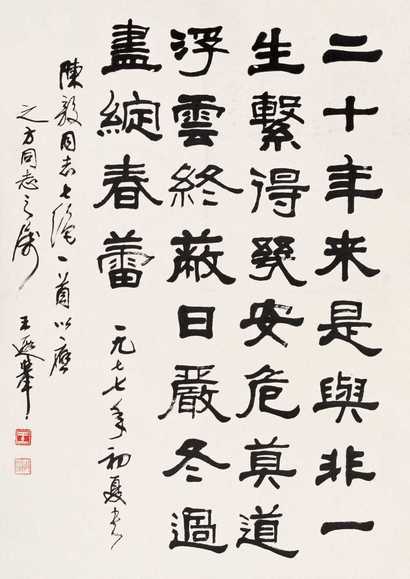 二十年来是與非一
生繫得幾安危莫道
浮雲終蔽日嚴冬過
盡綻春蕾
一九七七年初夏书
陳毅同志七絶一首以應
之方同志之属 王遐舉